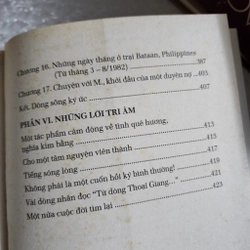 Chương 16. Những ngày tháng ở trại Bataan, Philippines
(Từ tháng 3 – 8/1982) 387
Chương 17. Chuyện với M., khởi đầu của một duyên nợ ... 403
Kết. Dòng sông ký ức 407
PHẦN VI. NHỮNG LỜI TRI ÂM
Một tác phẩm cảm động về tình quê hương,
nghĩa kim bằng 413
Cho một tâm nguyện viên thành 414
Tiếng sóng lòng 415
Không phải là một cuốn hồi ký bình thường! 420
Vài dòng nhân đọc “Từ dòng Thoại Giang...” 421
Một nửa cuộc đời tìm lại 423